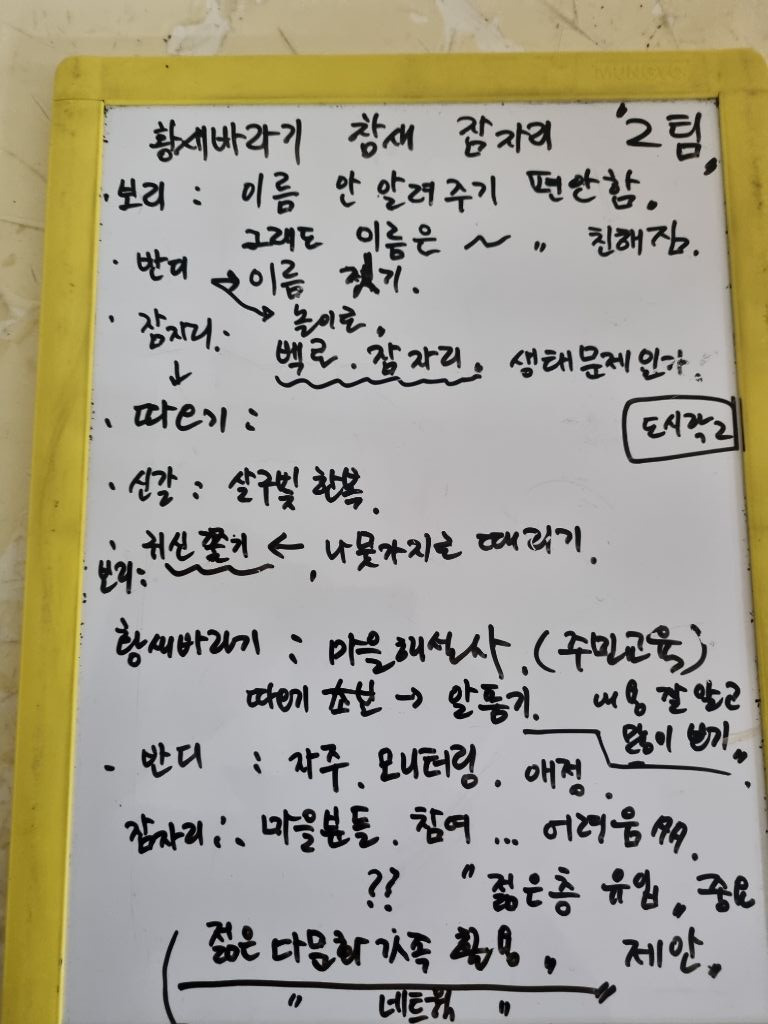 MUNGYO
황새바라기 참새 잠자리 '2팀,
· 보리 : 이름 안 알려주기 편안함.
그래도 이름은 ~ " 친해짐.
· 반디 → 이름 짓기.
→ 놀이로.
· 잠자리:
백로. 잠자리. 생태문제인가.
↓
· 따오기 :
도시락2
· 신갈 : 살구빛 한복.
· 귀신 쫓기 ← . 나뭇가지로 때리기.
보리:
황새바라기 : 마을해설사. (주민교육)
따오기 초보 → 알통기. 내용 잘 알고
많이 보기.,
· 반디 : 자주. 모니터링. 애정.
잠자리: . 마을분들. 참여 ... 어려움
?? " 젊은층 유입 " 중요
( 젊은 다문화가족 활용. 제안.
" 네트웍 "